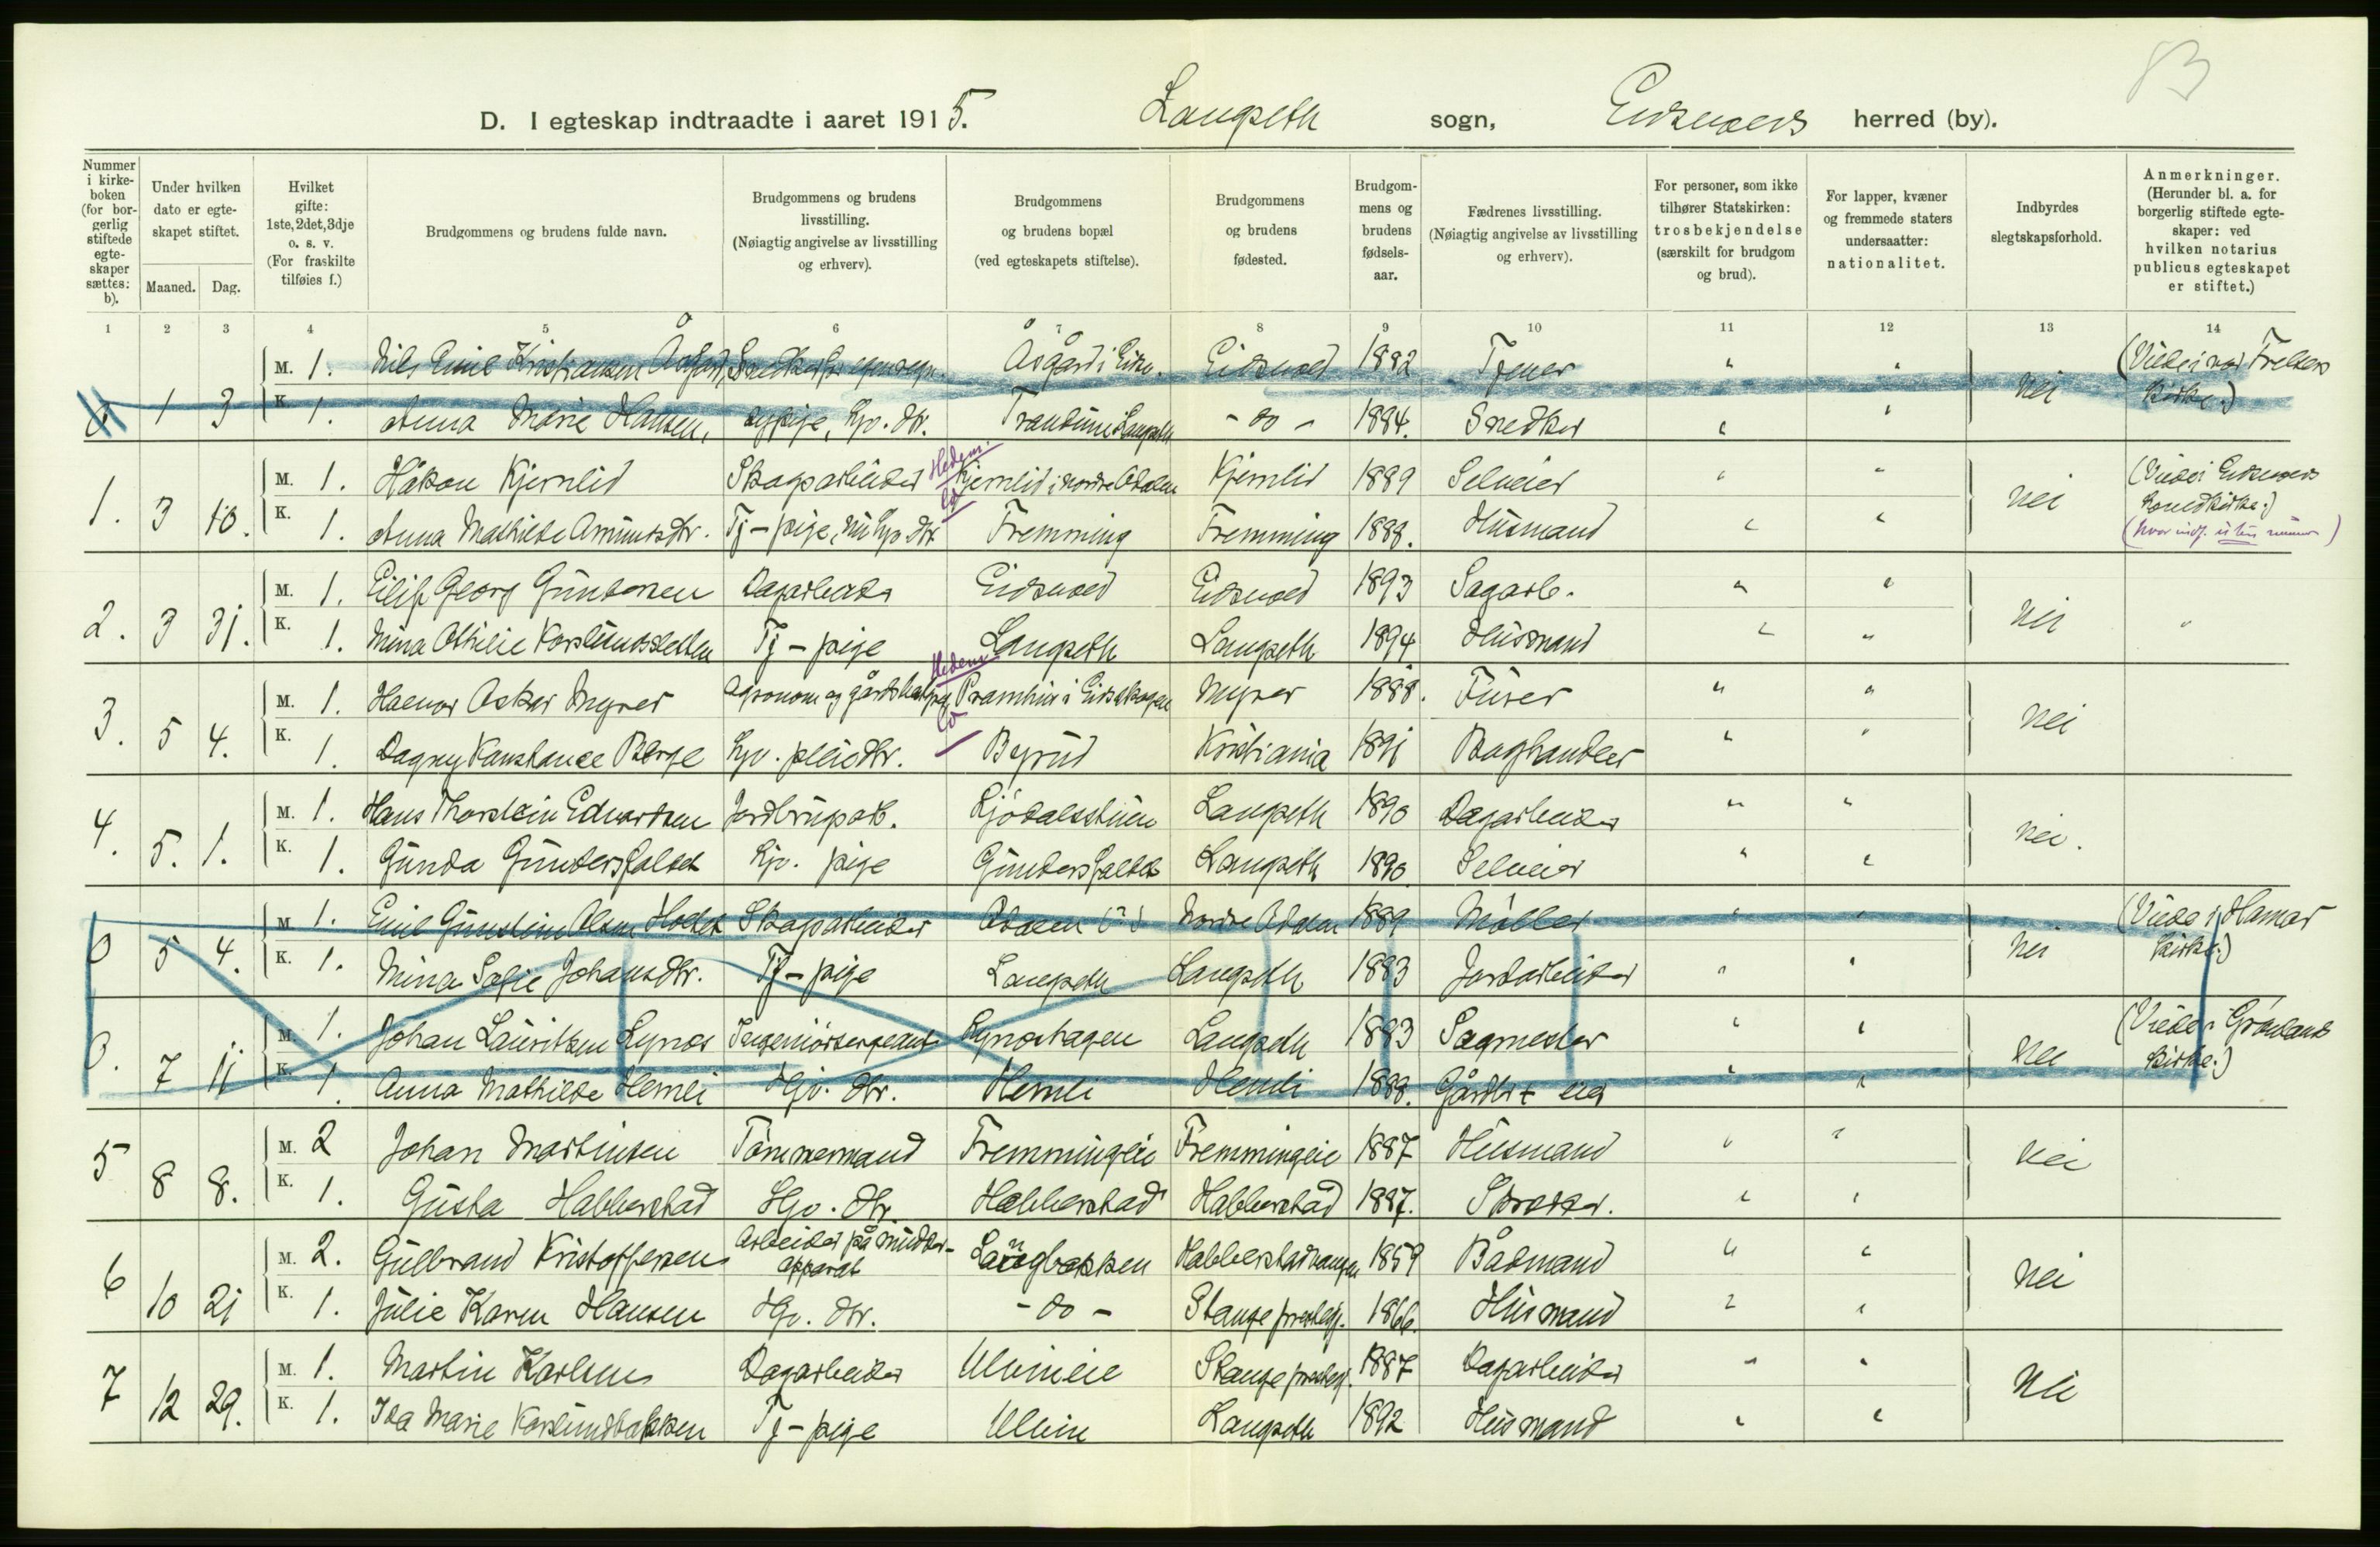 83
D. I egteskap indtraadte i aaret 1915. Langseth sogn, Eidsvolds herred (by).
Nummer i kirkeboken (for borgerlig stiftede egteskaper sættes: b).
Under hvilken dato er egteskapet stiftet.
Maaned. Dag.
Hvilket gifte: 1ste, 2det, 3dje o. s. v. (For fraskilte tilføies f.)
Brudgommens og brudens fulde navn.
Brudgommens og brudens livsstilling. (Nøiagtig angivelse av livsstilling og erhverv).
Brudgommens og brudens bopæl (ved egteskapets stiftelse).
Brudgommens og brudens fødested.
Brudgommens og brudens fødselsaar.
Fædrenes livsstilling. (Nøiagtig angivelse av livsstilling og erhverv).
For personer, som ikke tilhører Statskirken: trosbekjendelse (særskilt for brudgom og brud).
For lapper, kvæner og fremmede staters undersaatter: nationalitet.
Indbyrdes slegtskapsforhold.
Anmerkninger. (Herunder bl. a. for borgerlig stiftede egteskaper: ved hvilken notarius publicus egteskapet er stiftet.)
1 2 3 4 5 6 7 8 9 10 11 12 13 14
M. 1. Nils Emil Kristiansen Åsgård, Snedker for egen regn. Åsgård i Eidsv. Eidsvold 1882 Tjener " " (Viede i vor Frelsers
0 1 3 K. 1. Anna Marie Hansen, sypige, hjv. dtr. Trantun i Langseth - do - 1884. Snedker " " Nei Kirke.)
Hedem.
M. 1. Håkon Kjernlid Skogsarbeider Kjernlid i Nordre Odalen Kjernlid 1889 Selveier " " (Viede i Eidsvolds
1. 3 10. K. 1. Anna Mathilde Amundsdtr. Tj-pige, nu hjv. dtr. Fremming Fremming 1888. Husmand " " Nei Hovedkirke.)
(hvor indf. uten nummer)
M. 1. Eilif Georg Gundersen Dagarbeider Eidsvold Eidsvold 1893 Sagarb. " "
2. 3 31. K. 1. Mina Othilie Korslundsletten Tj-pige Langseth Langseth 1894 Husmand " " Nei "
Hedem.
M. 1. Haavar Oskar Myrer Agronom og gårdsbestyrer Pramhus i Eidskogen Myrer 1888. Furer " "
3. 5 4. K. 1. Dagny Konstance Berge hjv. pleiedtr. Byrud Kristiania 1891 Boghandler " " Nei
M. 1. Hans Thorstein Edvardsen Jordbrugsarb. Ljødalsstuen Langseth 1890 Dagarbeider " "
4. 5. 1. K. 1. Gunda Gundersfaldet hjv. pige Gundersfaldet Langseth 1890 Selveier " " Nei.
M. 1. Emil Gunstein Olsen Holtet Skogsarbeider Odalen (?) Nordre Odalen 1889 Møller " " (Viede i Hamar
0 5 4. K. 1. Mina Sofie Johansdtr. Tj-pige Langseth Langseth 1883 Jordarbeider " " Nei Kirke.)
M. 1. Johan Lauritsen Lynæs Ingeniørsergeant Lynæshagen Langseth 1883 Sagmester " " (Viede i Grønlands
0. 7 11 K. 1. Anna Mathilde Hemli Hjv. dtr. Hemli Hemli 1888. Gårdbr + eier " " Nei Kirke.)
M. 2 Johan Martinsen Tømmermand Fremmingeie Fremmingeie 1887 Husmand " "
5 8 8. K. 1. Gusta Habberstad Hjv. dtr. Habberstad Habberstad 1887. Skrædder. " " Nei
M. 2. Gulbrand Kristoffersen Arbeider på mudder- apparat Langbakken Habberstadvangen 1859 Bådmand " "
6 10 21 K. 1. Julie Karen Hansen Hjv. dtr. - do - Stange prestegj. 1866. Husmand " " Nei
M. 1. Martin Karlsen Dagarbeider Ulvineie Stange prestegj. 1887 Dagarbeider " "
7 12 29. K. 1. Ida Marie Korslundbakken Tj-pige Ulvin Langseth 1892 Husmand " " Nei